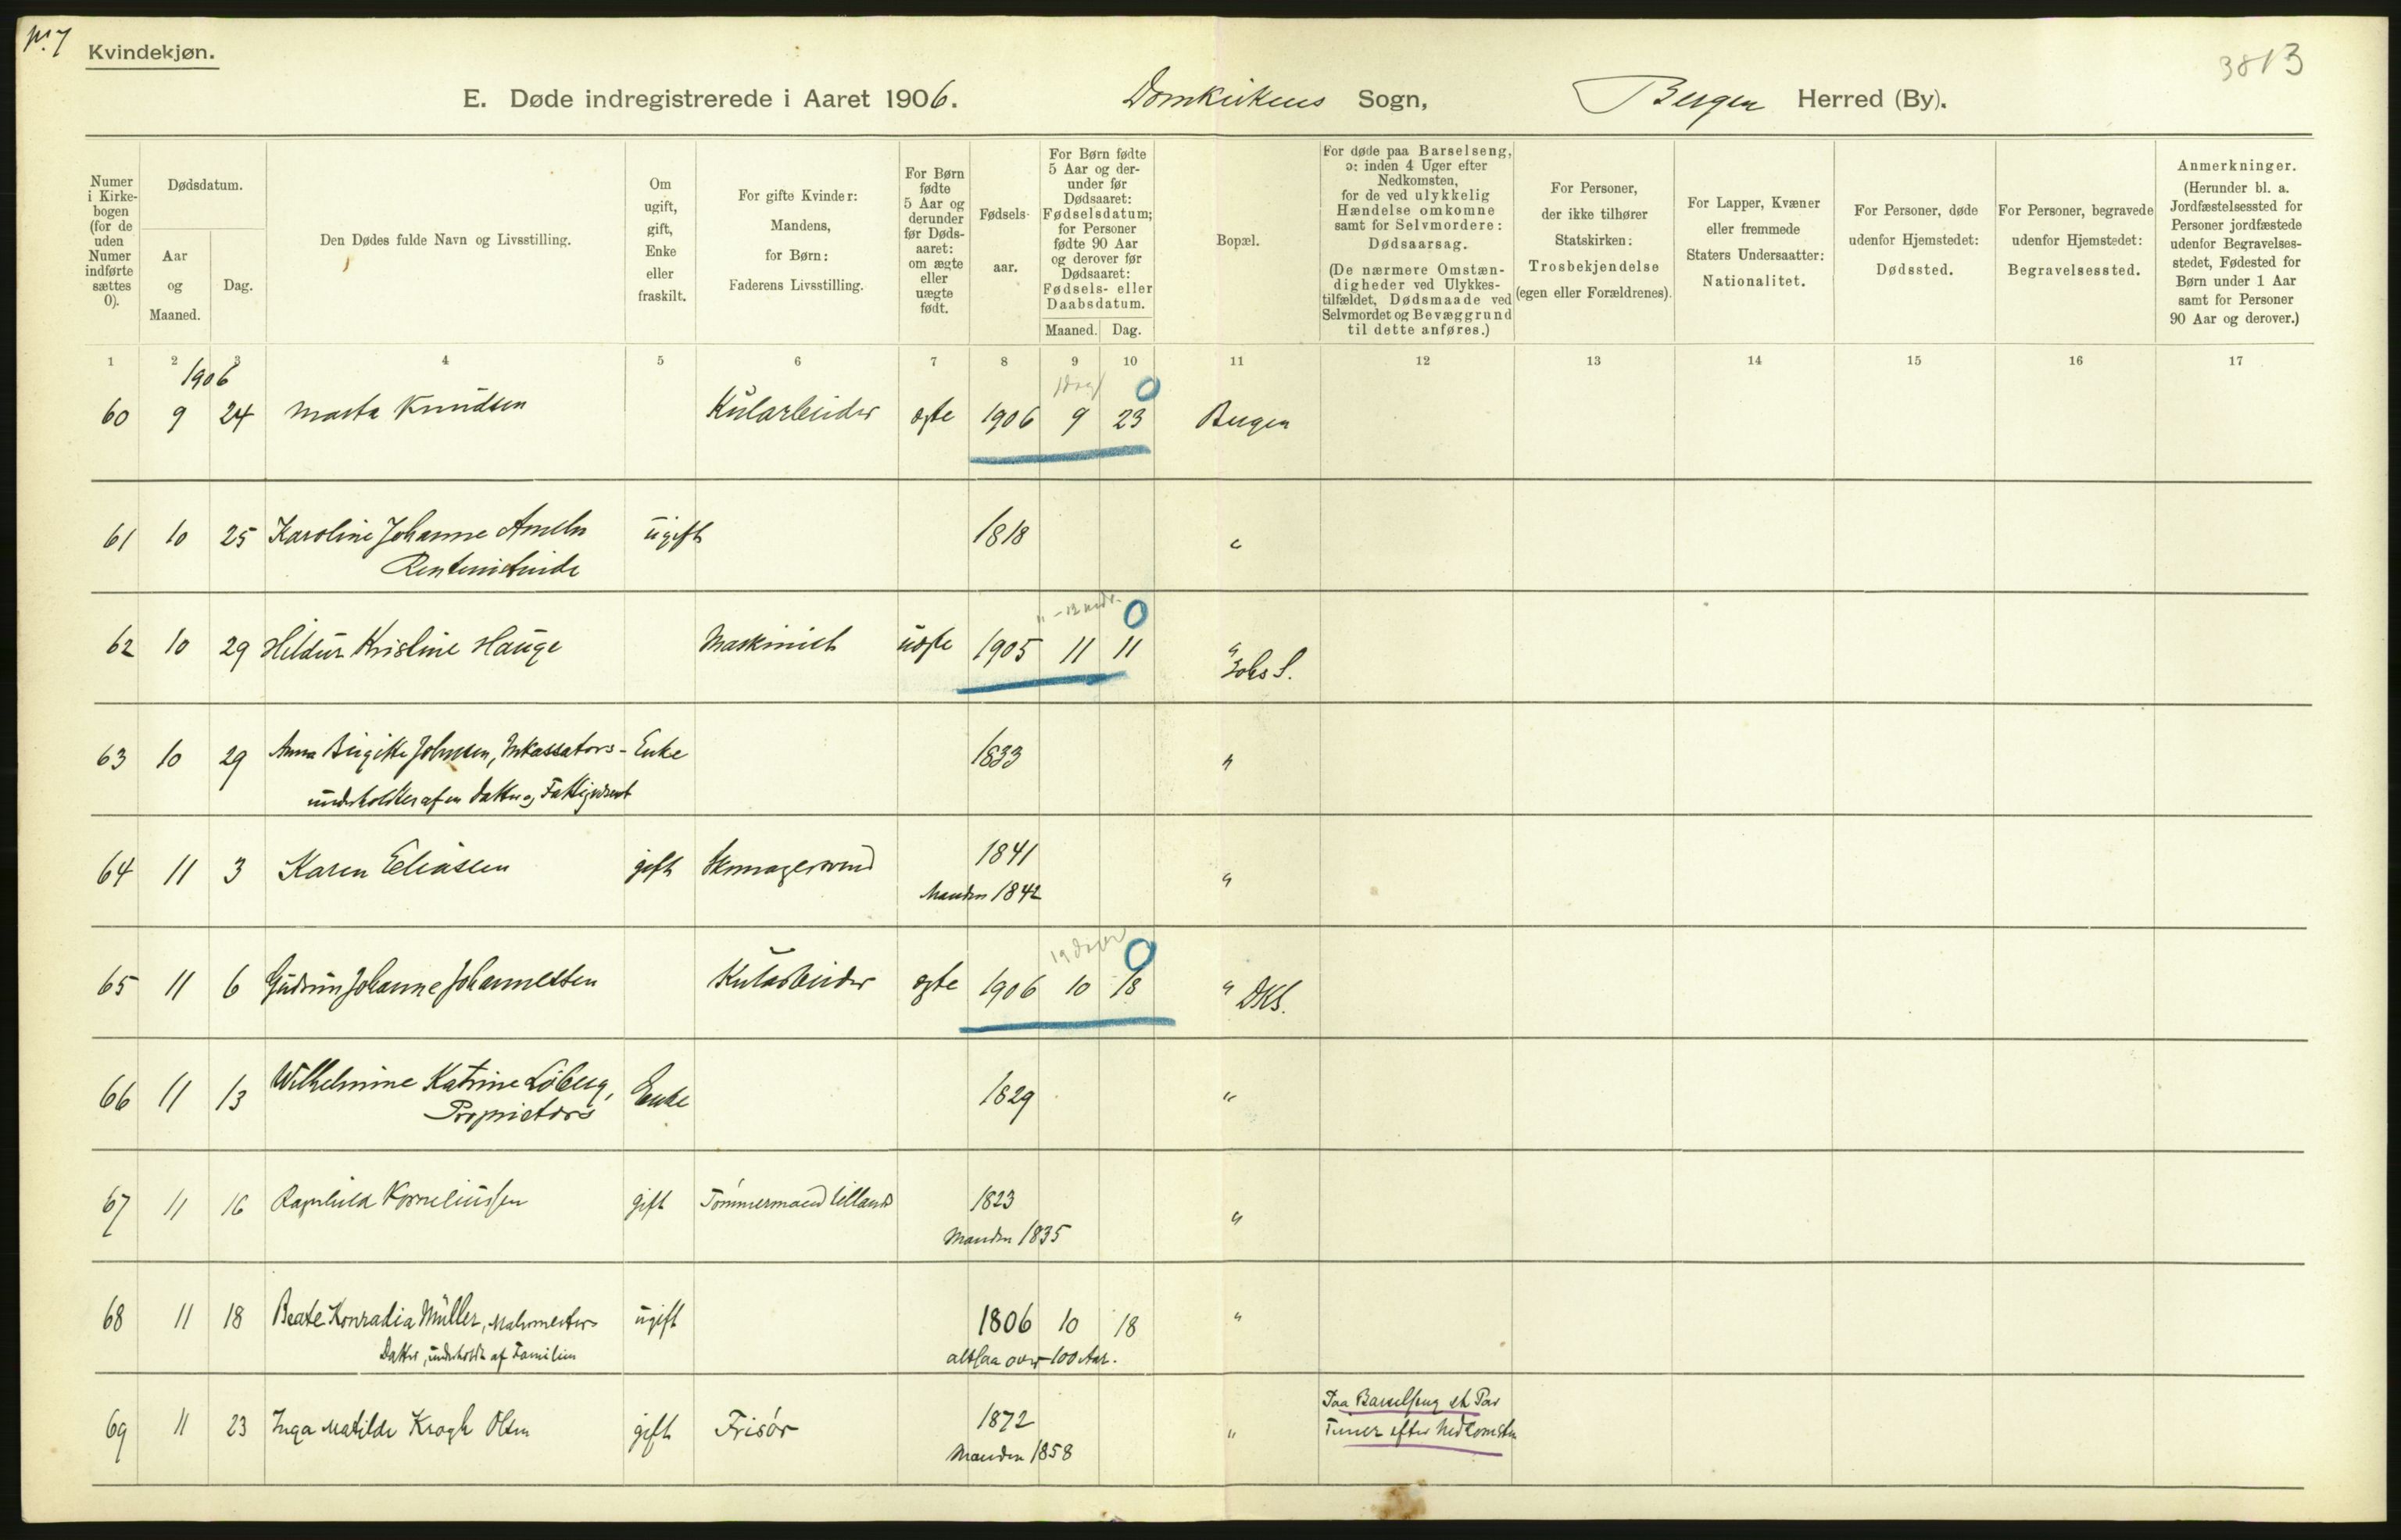 No. 7
Kvindekjøn.
3813
E. Døde indregistrerede i Aaret 1906. Domkirkens Sogn, Bergen Herred (By).
Numer i Kirke- bogen (for de uden Numer indførte sættes 0).
Dødsdatum.
Aar og Maaned.
Dag.
Den Dødes fulde Navn og Livsstilling.
Om ugift, gift, Enke eller fraskilt.
For gifte Kvinder: Mandens, for Børn: Faderens Livsstilling.
For Børn fødte 5 Aar og derunder før Døds- aaret: om ægte eller uægte født.
Fødsels- aar.
For Børn fødte 5 Aar og der- under før Dødsaaret: Fødselsdatum; for Personer fødte 90 Aar og derover før Dødsaaret: Fødsels- eller Daabsdatum.
Maaned. Dag.
Bopæl.
For døde paa Barselseng, ɔ: inden 4 Uger efter Nedkomsten, for de ved ulykkelig Hændelse omkomne samt for Selvmordere: Dødsaarsag. (De nærmere Omstæn- digheder ved Ulykkes- tilfældet, Dødsmaade ved Selvmordet og Bevæggrund til dette anføres.)
For Personer, der ikke tilhører Statskirken: Trosbekjendelse (egen eller Forældrenes).
For Lapper, Kvæner eller fremmede Staters Undersaatter: Nationalitet.
For Personer, døde udenfor Hjemstedet: Dødssted.
For Personer, begravede udenfor Hjemstedet: Begravelsessted.
Anmerkninger. (Herunder bl. a. Jordfæstelsessted for Personer jordfæstede udenfor Begravelses- stedet, Fødested for Børn under 1 Aar samt for Personer 90 Aar og derover.)
1 2 3 4 5 6 7 8 9 10 11 12 13 14 15 16 17
1906
1 dag 0
60 9 24 Marta Knudsen Kularbeider ægte 1906 9 23 Bergen
61 10 25 Karoline Johanne Ameln ugift 1818 "
Rentenistinde
" - 12 mdr. 0
62 10 29 Hildur Kristine Hauge Maskinist uægte 1905 11 11 "
Johs S.
63 10 29 Anna Birgitte Johnsen, Inkassators- Enke 1833 "
underholdtes af en Datter og Fattigvæsenet
64 11 3 Karen Eliassen gift Skomagersvend 1841 "
Manden 1842
19 dager 0
65 11 6 Gudrun Johanne Johannessen Kularbeider ægte 1906 10 18 " DKS.
66 11 13 Wilhelmine Katrine Löberg, Enke 1829 "
Proprietærs
67 11 16 Ragnhild Korneliussen gift Tömmermand tillands 1823 "
Manden 1835
68 11 18 Beate Konradia Müller, Malermesters ugift 1806 10 18 "
Datter, underholdt af Familien altsaa over 100 Aar.
69 11 23 Inga Matilde Krogh Olsen gift Frisör 1872 " Paa Barselseng et Par
Manden 1858 Timer efter Nedkomsten